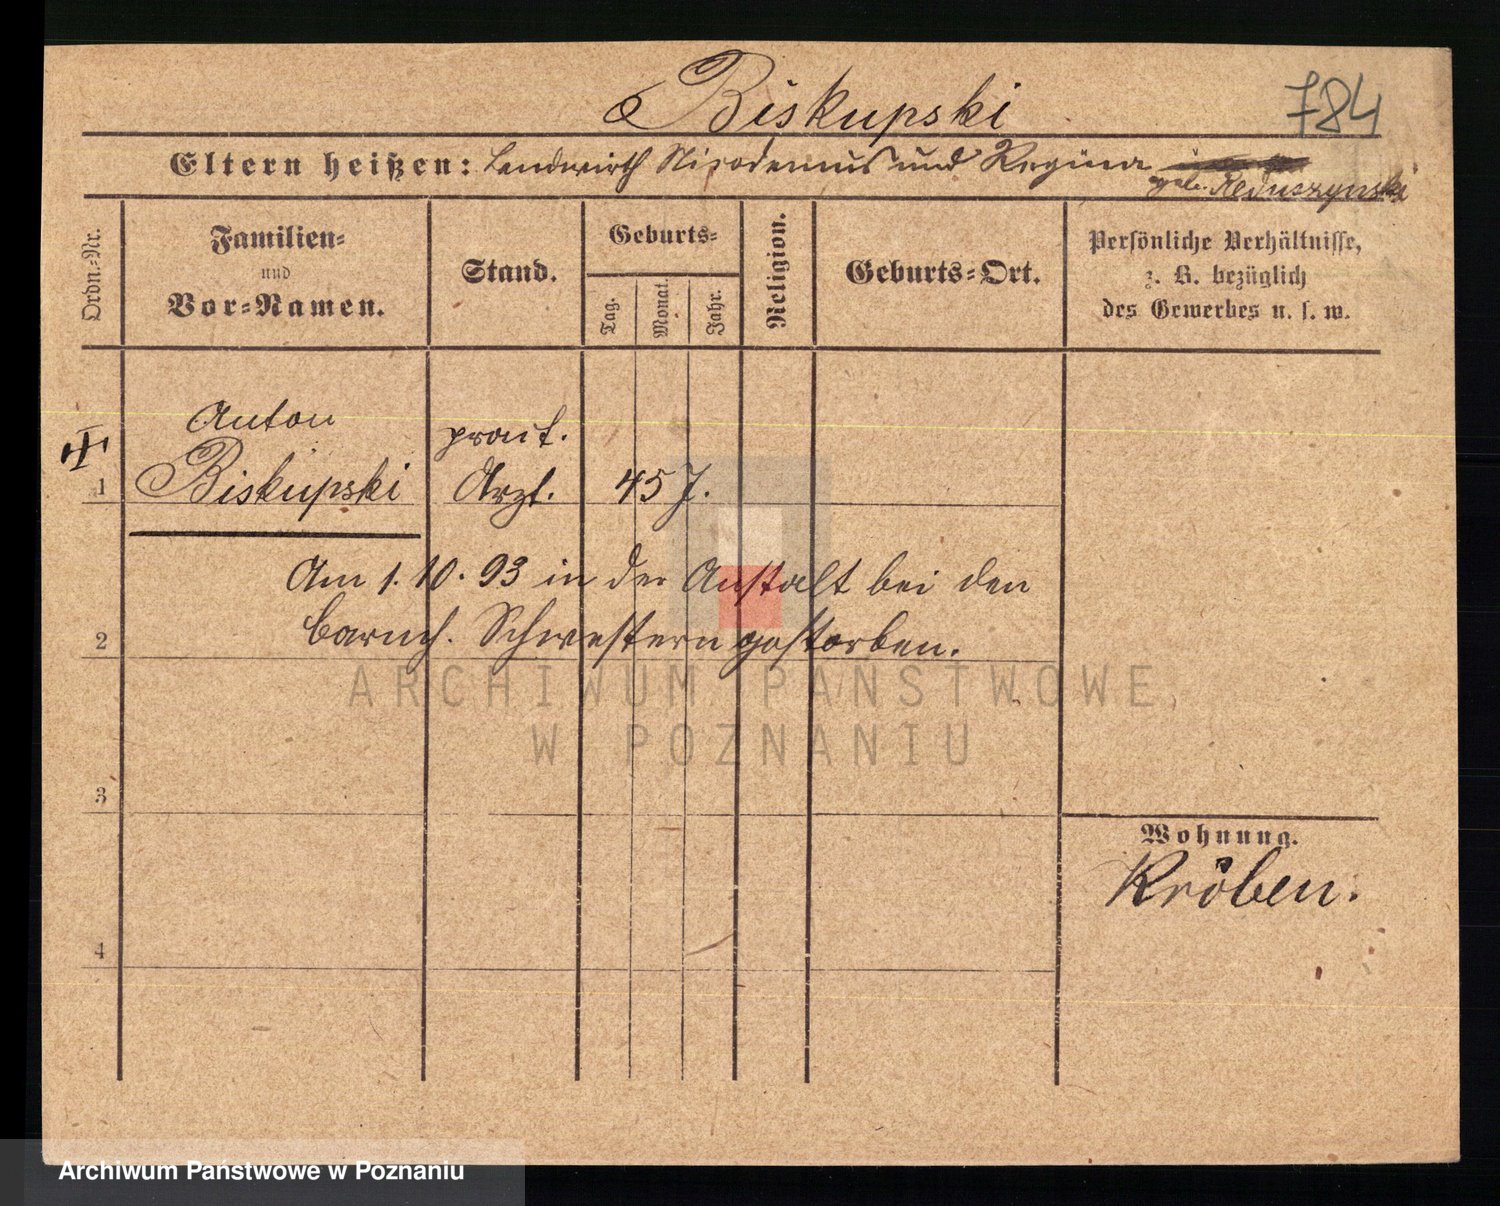 Biskupski
784
Eltern heißen: Landwirth Nicodemus und Regina
geb. Reduszynski
Ordn.-Nr.
Familien-
und
Vor-Namen.
Stand.
Geburts-
Tag.
Monat.
Jahr.
Religion.
Geburts-Ort.
Persönliche Verhältnisse,
z. B. bezüglich
des Gewerbes u. s. w.
Anton
1 Biskupski
prakt.
Arzt.
45 J.
Am 1. 10. 93 in der Anstalt bei den
2 barmh. Schwestern gestorben.
ARCHIWUM PAŃSTWOWE
W POZNANIU
3
Wohnung.
Kröben.
4
Archiwum Państwowe w Poznaniu